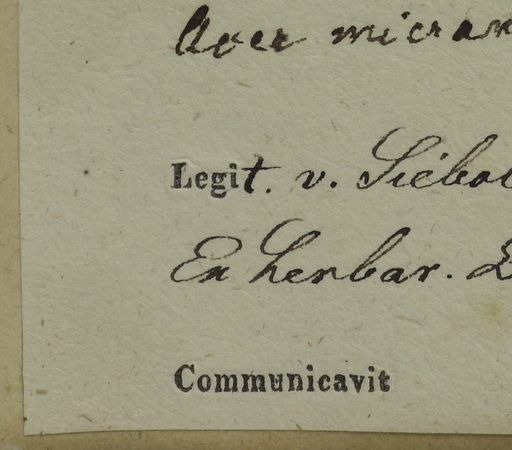 Acer micran
Legit. v. Siebol
Ex herbar.
Communicavit